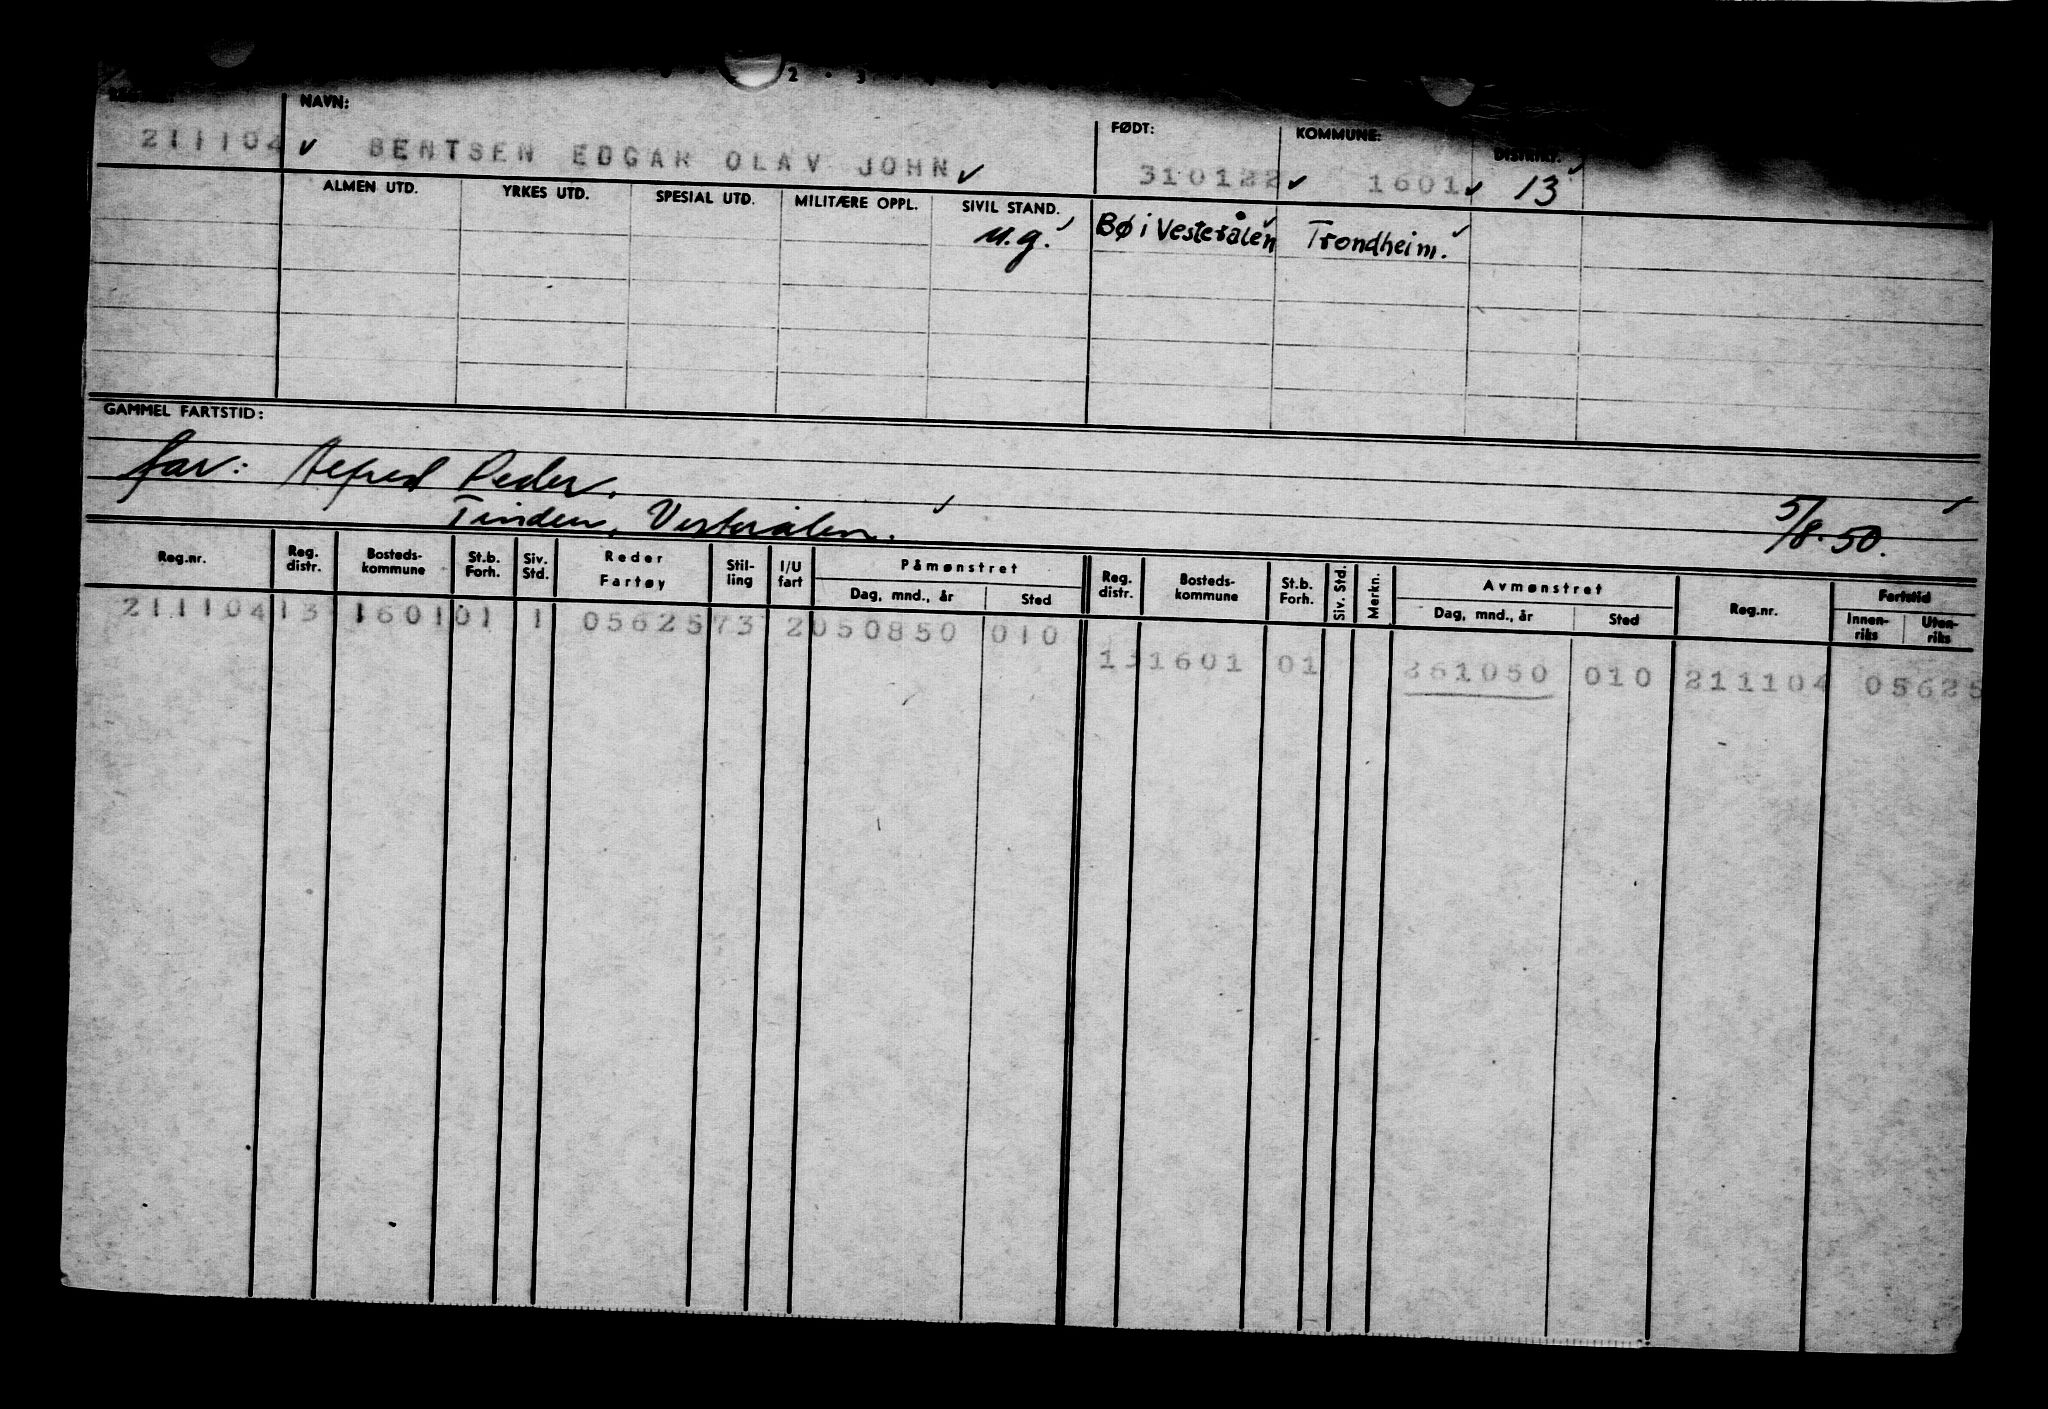 2 · 3
NAVN: FØDT: KOMMUNE: DISTRIKT:
211104 BENTSEN EDGAR OLAV JOHN 310122 1601 13
ALMEN UTD. YRKES UTD. SPESIAL UTD. MILITÆRE OPPL. SIVIL STAND.
u.g. Bø i Vesterålen Trondheim.
GAMMEL FARTSTID:
far: Alfred Peder.
Tinden, Vesterålen. 5/8.50.
Reg.nr. Reg. distr. Bosteds-kommune St.b. Forh. Siv. Std. Reder Fartøy Stil-ling I/U fart Påmønstret Dag, mnd., år Sted Reg. distr. Bosteds-kommune St.b. Forh. Siv. Std. Merkn. Avmønstret Dag, mnd., år Sted Reg.nr. Fartstid Innen-riks Uten-riks
211104 13 1601 01 1 05625 73 2 050850 010
13 1601 01 261050 010 211104 05625